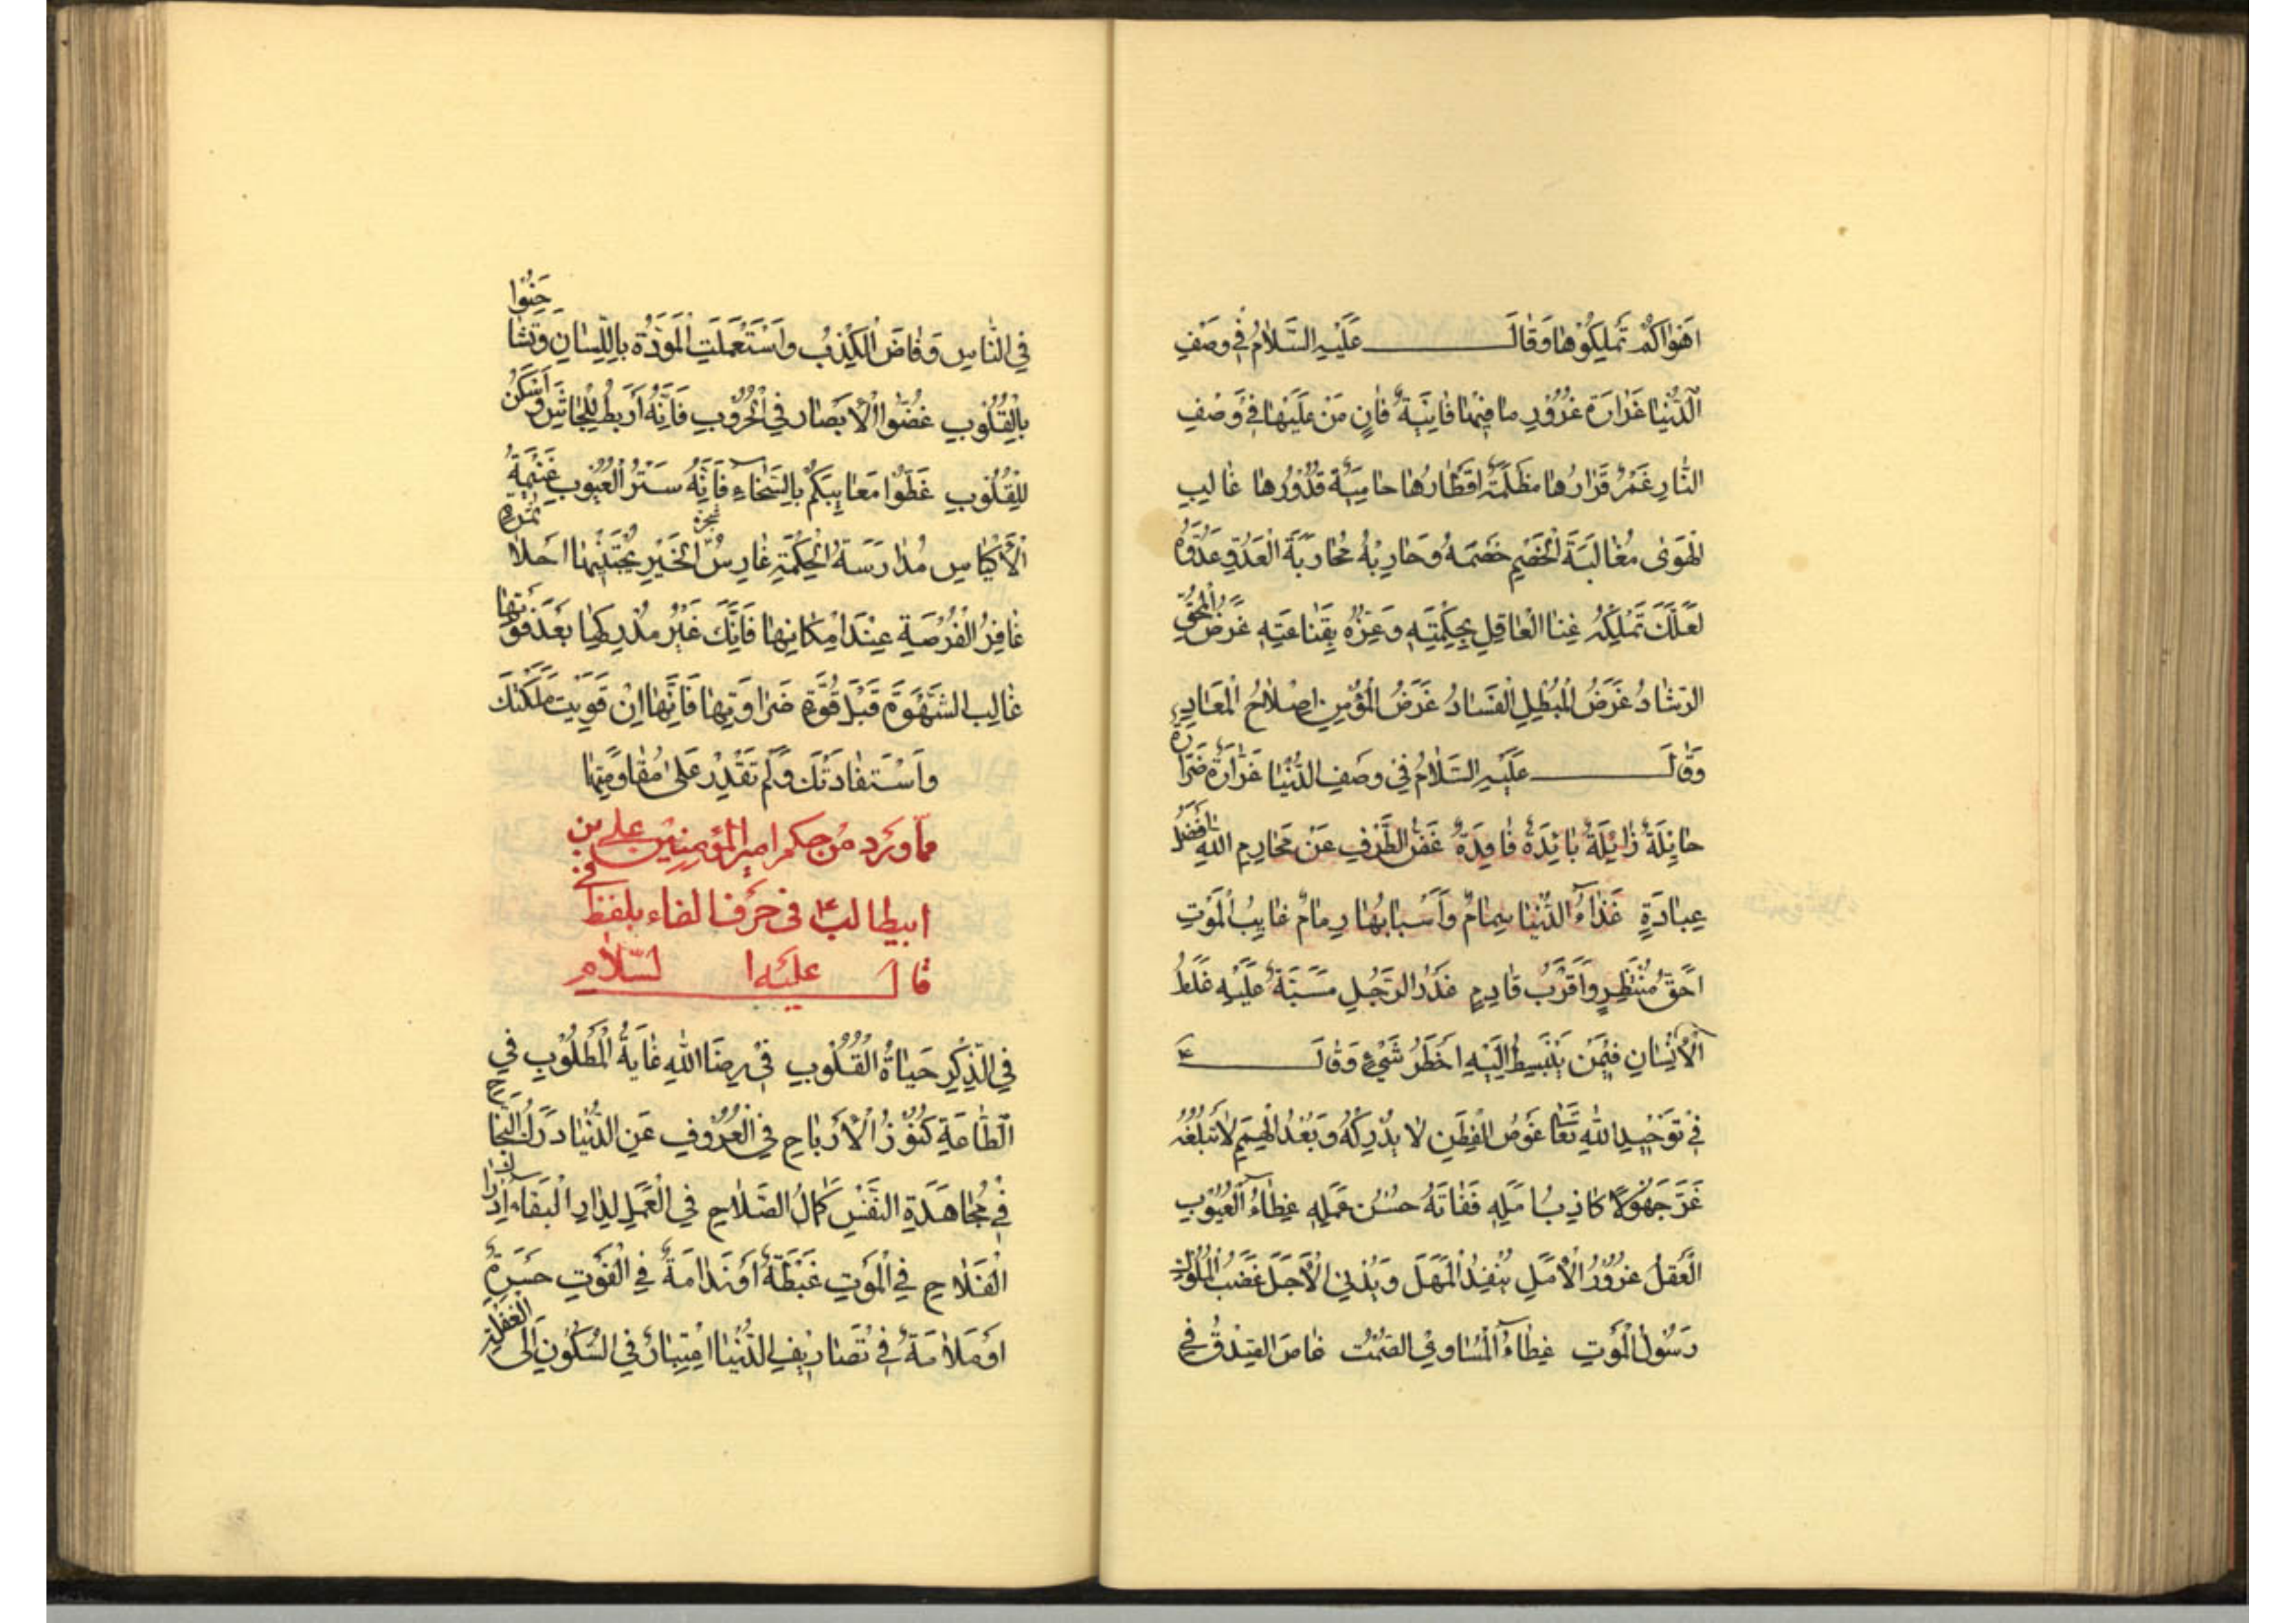 اَهْوٰاكُمْ تَمْلِكُوْهٰا وَقٰالَ عَلَيْهِ السَّلٰامُ فِي وَصْفِ
الدُّنْيٰا غَرّٰارَة غُرُوْرٍ ما فِيْهٰا فٰانِيَةٌ فٰانٍ مَنْ عَلَيْهٰا فِي وَصْفِ
النّٰارِ غَمْرٌ قَرٰارُهٰا مظْلِمَةٌ اَقْطٰارُهٰا حٰامِيَةٌ قُدُوْرُهٰا غٰالِبِ
الْهَوىٰ مُغٰالَبَةَ الْخَصْمِ خَصْمَهُ وَحٰارِبْهُ مُحٰارَبَةَ الْعَدُوِّ عَدُوَّهُ
لَعَلَّكَ تَمْلِكُهُ غِنَا الْعٰاقِلِ بِحِكْمَتِهِ وَعِزُّهُ بِقَنٰاعَتِهِ غَرَضُ الْمُحِقِّ
الرَّشٰادُ غَرَضُ الْمُبْطِلِ الْفَسٰادُ غَرَضُ الْمُؤْمِنِ اِصْلٰاحُ الْمَعٰادِ
وَقٰالَ عَلَيْهِ السَّلٰامُ فِي وَصْفِ الدُّنْيٰا غَرّٰارَةٌ ضَرّٰارَةٌ
حٰائِلَةٌ زٰائِلَةٌ بٰائِدَةٌ نٰافِدَةٌ غَضُّ الطَّرْفِ عَنْ مَحٰارِمِ اللهِ اَفْضَلُ
عِبادَةٍ غَذٰاءُ الدُّنْيٰا سِمٰامٌ وَاَسْبابُهٰا رِمٰامٌ غٰايِبُ الْمَوْتِ
اَحَقُّ مُنْتَظِرٍ وَاَقْرَبُ قٰادِمٍ غَدْرُ الرَّجُلِ مَسَبَّةٌ عَلَيْهِ غَلَطُ
الْاِنْسٰانِ فِيْمَنْ يَنْبَسِطُ اِلَيْهِ اَخْطَرُ شَيْءٍ وَقٰالَ ع
فِي تَوْحِيْدِ اللهِ تَعٰا غَوْصُ الْفِطَنِ لا يُدْرِكُهُ وَبُعْدُ الْهِمَمِ لا تَبْلُغُهُ
غَرَّ جَهُوْلاً كٰاذِبُ اَمَلِهِ فَفٰاتَهُ حُسْنُ عَمَلِهِ غِطٰاءُ الْعُيُوْبِ
الْعَقْلُ غُرُوْرُ الْاَمَلِ يُنْفِدُ الْمَهَلَ وَيُدْنِي الْاَجَلَ غَضَبُ الْمُلُوْكِ
رَسُوْلُ الْمَوْتِ غِطٰاءُ الْمَسٰاوِي الصَّمْتُ غٰاضَ الصِّدْقُ فِي
فِي النّٰاسِ وَفٰاضَ الْكِذْبُ وَاسْتُعْمِلَتِ الْمَوَدَّةُ بِاللِّسٰانِ وَتَشٰاحَنُوْا
بِالْقُلُوْبِ غُضُّوا الْاَبْصٰارَ فِي الْحُرُوْبِ فَاِنَّهُ اَرْبَطُ لِلْجٰاشِ وَاَسْكَنُ
لِلْقُلُوْبِ غَطُّوْا مَعٰايِبَكُمْ بِالسَّخٰاءِ فَاِنَّهُ سَتْرُ الْعُيُوْبِ غَنِيْمَةُ
الْاَكْيٰاسِ مُدٰارَسَةُ الْحِكْمَةِ غٰارِسُ شَجَرَةِ الْخَيْرِ يَجْتَنِيْهٰا اَحْلا ثَمَرَةٍ
غٰافِرُ الْفُرْصَةِ عِنْدَ اِمْكٰانِهٰا فَاِنَّكَ غَيْرُ مُدْرِكِهٰا بَعْدَ فَوْتِهٰا
غٰالِبِ الشَّهْوَةَ قَبْلَ قُوَّةِ ضَرٰاوَتِهٰا فَاِنَّهٰا اِنْ قَوِيَتْ مَلَكَتْكَ
وَاسْتَفٰادَتْكَ وَلَمْ تَقْدِرْ عَلىٰ مُقٰاوَمَتِهٰا
ممّا وَرَد مِنْ حِكَم امير المؤمنين علي بن
ابيطالب ع في حَرف الفاء بلفظ في
قالَ عليه السّلام
فِي الذِّكْرِ حَيٰاةُ الْقُلُوْبِ فِي رِضَا اللهِ غٰايَةُ الْمَطْلُوْبِ فِي
الطّٰاعَةِ كُنُوْزُ الْاَرْبٰاحِ فِي الْعُزُوْفِ عَنِ الدُّنْيٰا دَرَكُ النَّجٰاحِ
فِي مُجٰاهَدَةِ النَّفْسِ كَمٰالُ الصَّلٰاحِ فِي الْعَمَلِ لِدٰارِ الْبَقٰاءِ اِدْرٰاكُ
الْفَلٰاحِ فِي الْمَوْتِ غَبْطَةٌ اَوْ نَدٰامَةٌ فِي الْفَوْتِ حَسْرَةٌ
اَوْ مَلٰامَةٌ فِي تَصٰارِيْفِ الدُّنْيٰا اعْتِبٰارٌ فِي السُّكُوْنِ اِلَى الْغَفْلَةِ